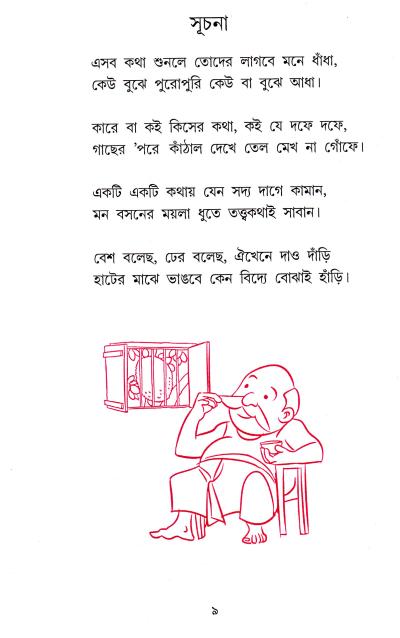 সূচনা
এসব কথা শুনলে তোদের লাগবে মনে ধাঁধা,
কেউ বুঝে পুরোপুরি কেউ বা বুঝে আধা।
কারে বা কই কিসের কথা, কই যে দফে দফে,
গাছের ’পরে কাঁঠাল দেখে তেল মেখ না গোঁফে।
একটি একটি কথায় যেন সদ্য দাগে কামান,
মন বসনের ময়লা ধুতে তত্ত্বকথাই সাবান।
বেশ বলেছ, ঢের বলেছ, ঐখেনে দাও দাঁড়ি
হাটের মাঝে ভাঙবে কেন বিদ্যে বোঝাই হাঁড়ি।
৯